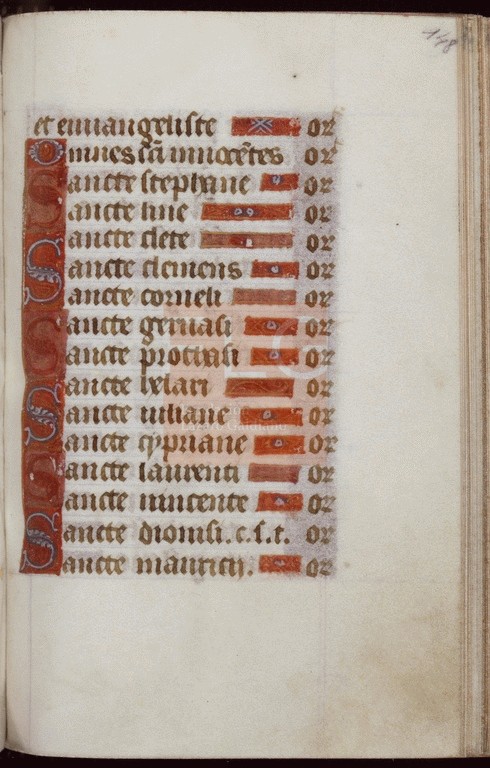 148
et euuangeliste or
Omnes sc̃i innocẽtes or
Sancte stephane or
Sancte line or
Sancte clete or
Sancte clemens or
Sancte corneli or
Sancte geruasi or
Sancte prothasi or
Sancte helari or
Sancte iuliane or
Sancte cypriane or
Sancte laurenti or
Sancte uincente or
Sancte dionisi.c.s.t. or
Sancte mauricij. or
Lázaro Galdiano